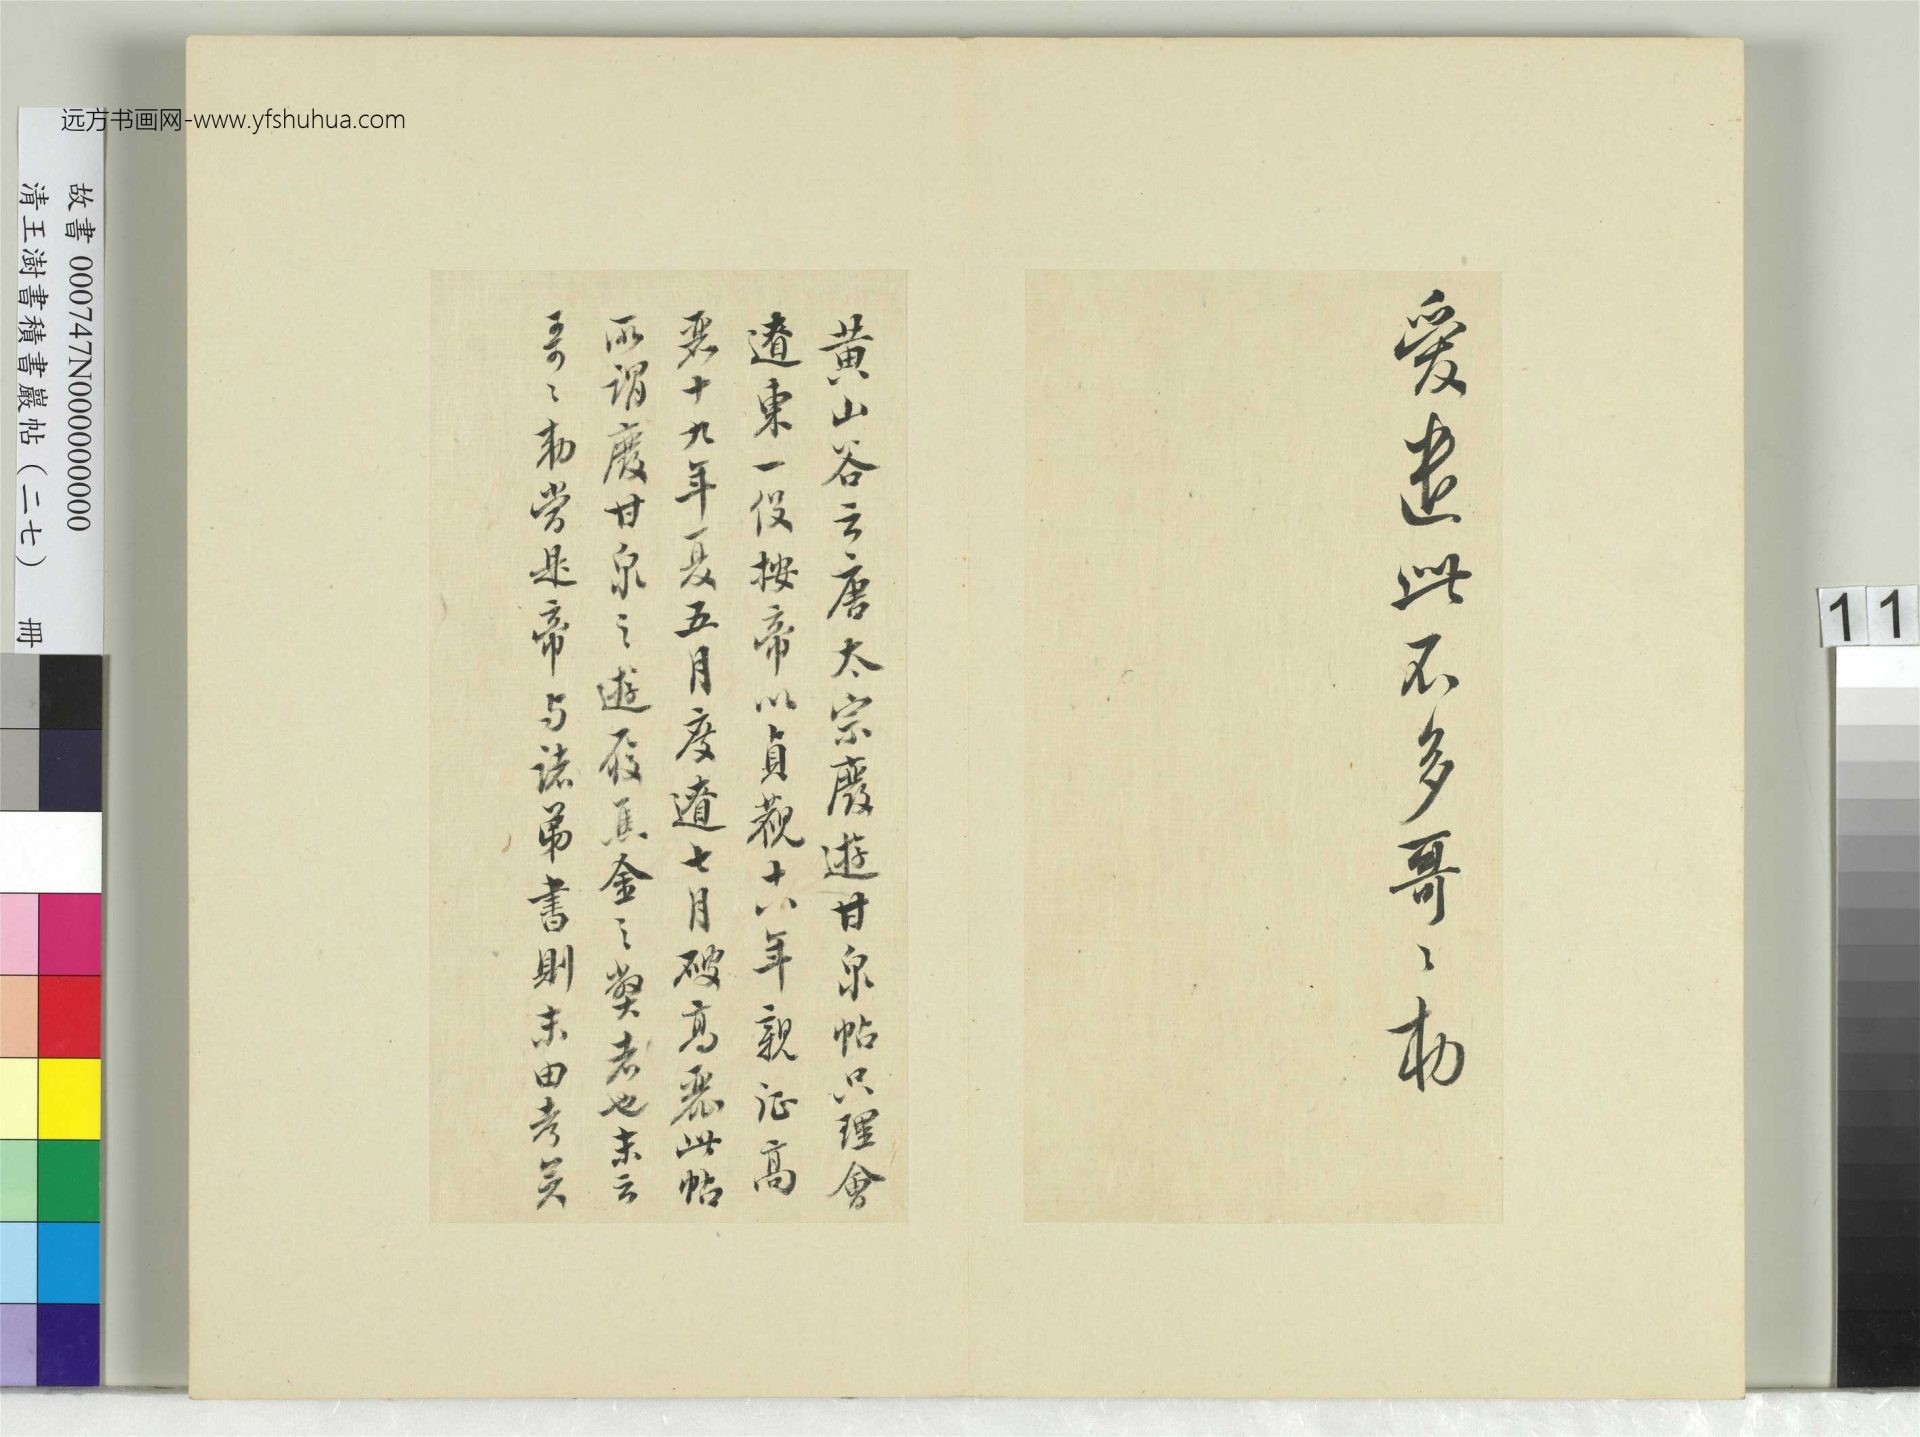 远方书画网-www.yfshuhua.com
故書 000747N000000000
清王澍書積書巖帖（二七） 冊
11
愛遣此不多哥〻勅
黄山谷云唐太宗廢遊甘泉帖只理會
遼東一役按帝以貞觀十八年親征高
麗十九年夏五月度遼七月破高麗此帖
所謂廢甘泉之遊 金之弊者也末云
哥〻勅當是帝与諸弟書則末由考矣